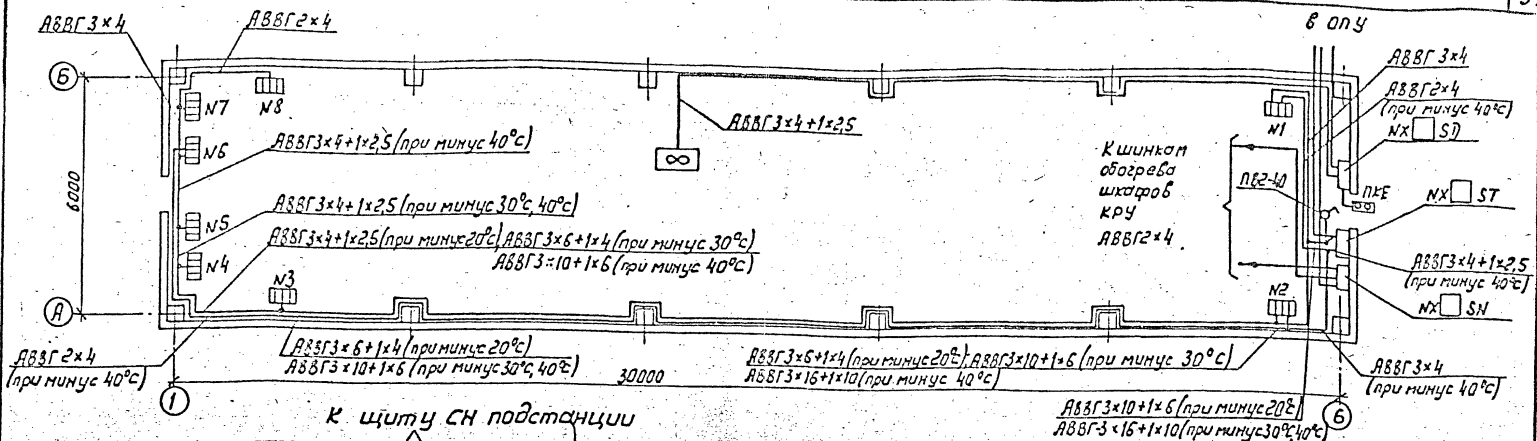 АВВГ3×4
АВВГ2×4
в ОПУ
АВВГ 3×4
АВВГ2×4
(при минус 40°С)
NX SD
Б
N7
N8
N6
АВВГ3×4+1×2,5 (при минус 40°С)
АВВГ3×4+1×2,5
6000
N1
К шинкам
обогрева
шкафов
КРУ
АВВГ2×4
ПВ2-40
ПКЕ
NX ST
АВВГ3×4+1×2,5 (при минус 30°С, 40°С)
N5
АВВГ3×4+1×2,5 (при минус 20°С), АВВГ3×6+1×4 (при минус 30°С)
АВВГ3×10+1×6 (при минус 40°С)
N4
N3
N2
АВВГ3×4+1×2,5
(при минус 40°С)
NX SN
А
АВВГ2×4
(при минус 40°С)
АВВГ3×6+1×4 (при минус 20°С)
АВВГ3×10+1×6 (при минус 30°С, 40°С)
АВВГ3×6+1×4 (при минус 20°С), АВВГ3×10+1×6 (при минус 30°С)
АВВГ3×16+1×10 (при минус 40°С)
АВВГ3×4
(при минус 40°С)
30000
1
6
АВВГ3×10+1×6 (при минус 20°С)
АВВГ-3×16+1×10 (при минус 30°С, 40°С)
К щиту СН подстанции